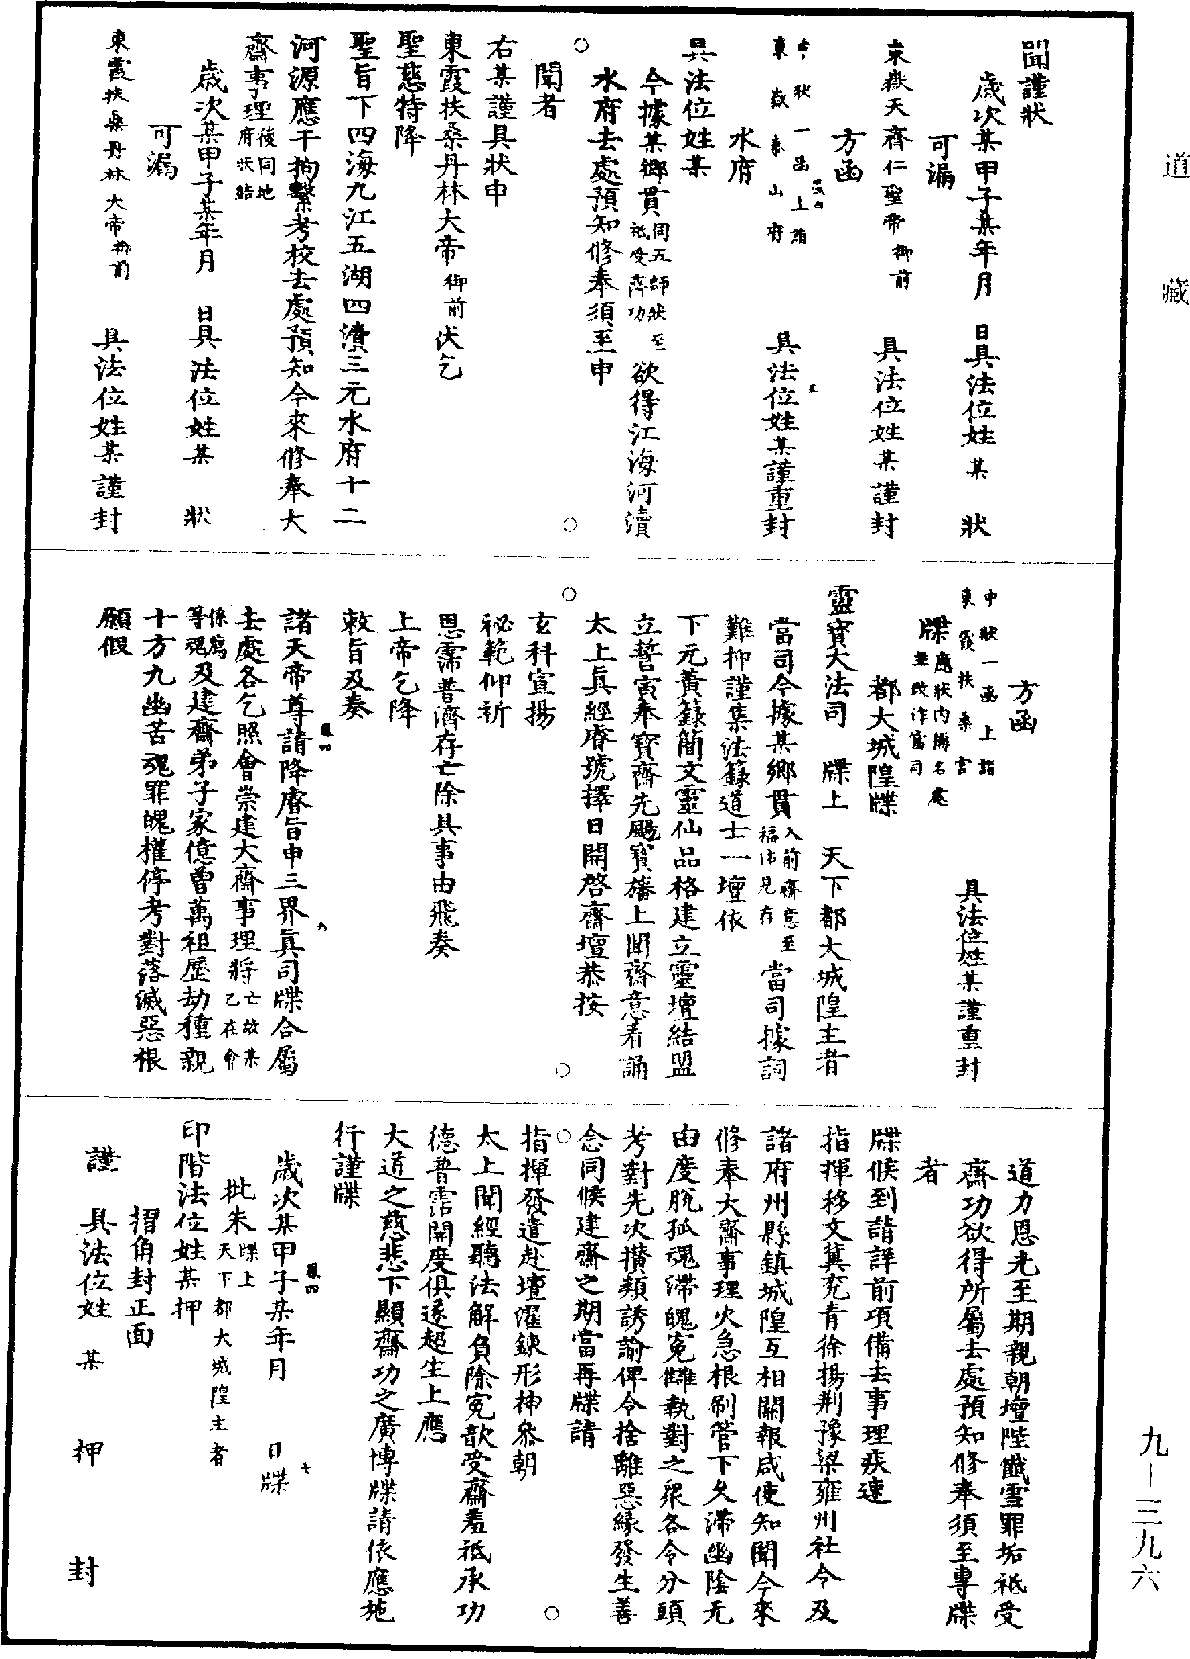 道藏
聞謹狀
歲次某甲子某年月　日具法位姓某　狀
可漏
東嶽天齊仁聖帝御前　具法位姓某謹封
方函
申狀一函上詣
東嶽泰山府　具法位姓某謹重封
水府
具法位姓某
今據某鄉貫同五師狀至祇受齋功欲得江海河瀆
水府去處預知修奉須至申
聞者
右某謹具狀申
東霞扶桑丹林大帝御前伏乞
聖慈特降
聖旨下四海九江五湖四瀆三元水府十二
河源應干拘繫考校去處預知今來修奉大
齋事理後同地府狀結
歲次某甲子某年月　日具法位姓某　狀
可漏
東霞扶桑丹林大帝御前　具法位姓某謹封
方函
申狀一函上詣
東霞扶桑宮　具法位姓某謹重封
牒應狀內賜名處並改作寫司
都大城隍牒
靈寶大法司　牒上　天下都大城隍主者
當司今據某鄉貫入前齋意至福沾見存當司據詞
難抑謹集法籙道士一壇依
下元黃籙簡文靈仙品格建立靈壇結盟
立誓寅奉寶齋先颺寶旛上聞齋意看誦
太上真經膺號擇日開啓齋壇恭按
玄科宣揚
祕範仰祈
恩霈普濟存亡除具事由飛奏
上帝乞降
敕旨及奏
諸天帝尊請降睿旨申三界真司牒合屬
去處各乞照會崇建大齋事理將亡故某乙在會
係薦等魂及建齋弟子家億曾萬祖歷劫種親
十方九幽苦魂罪魄權停考對落滅惡根
願假
道力恩光至期親朝壇陛懺雪罪垢祗受
齋功欲得所屬去處預知修奉須至專牒
者
牒候到請詳前項備去事理疾速
指揮移文冀兗青徐揚荊豫梁雍州社令及
諸府州縣鎮城隍互相關報咸使知聞今來
修奉大齋事理火急根刷管下久滯幽陰无
由度脫孤魂滯魄冤讎執對之衆各令分頭
考對先次攢類誘諭俾令捨離惡緣發生善
念同候建齋之期當再牒請
指揮發遣赴壇濯鍊形神叅朝
太上聞經聽法解負除冤歆受齋羞祗承功
德普霑開度俱遂超生上應
大道之慈悲下顯齋功之廣博牒請依應施
行謹牒
歲次某甲子某年月　日牒
批朱牒上天下都大城隍主者
印階法位姓某押
摺角封正面
謹　具法位姓某　押　封
九—三九六